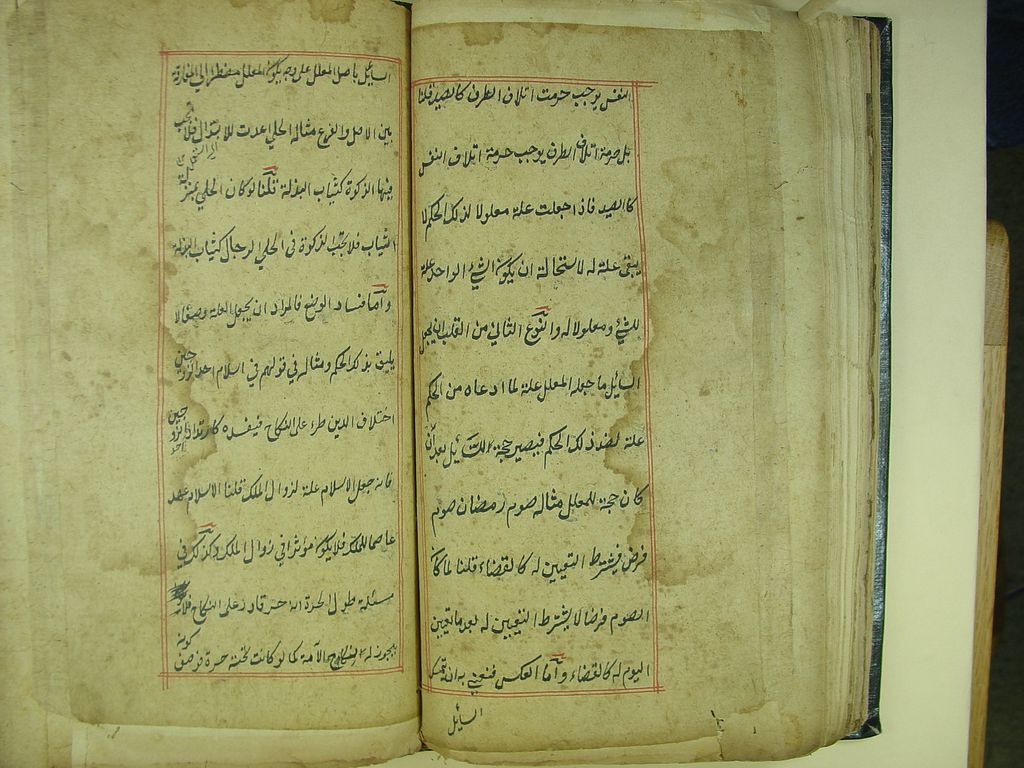 النفس يوجب حرمت اتلاف الطرف كالصيد قلنا
بل حرمة اتلاف الطرف يوجب حرمة اتلاف النفس
كالصيد فاذا جعلت علته معلولا لذلك الحكم لا
يبقى علة له لاستحالة ان يكون الشئ الواحد علة
للشئ ومعلولا له والنوع الثاني من القلب ان يجعل
السائل ما جعله المعلل علة لما ادعاه من الحكم
علة لضد ذلك الحكم فيصير حجة للسائل بعد ان
كان حجة للمعلل مثاله صوم رمضان صوم
فرض فيشترط التعيين له كالقضاء قلنا لما كان
الصوم فرضا لا يشترط التعيين له بعد ما تعين
اليوم له كالقضاء واما العكس فنعني به ان يتمسك
السائل
السائل باصل المعلل على وجه يكون المعلل مضطرا الى المفارقة
بين الاصل والفرع مثاله الحلي اعدت للابتذال فلا يجب
فيها الزكوة كثياب البذلة قلنا لو كان الحلي بمنزلة
الثياب فلا تجب الزكوة في الحلي الرجال كثياب البذلة
واما فساد الوضع فالمراد ان يجعل العلة وصفا لا
يليق بذلك الحكم ومثاله في قولهم في اسلام احد الزوجين
اختلاف الدين طرء على النكاح فيفسده كارتداد احد الزوجين
فانه جعل الاسلام علة لزوال الملك قلنا الاسلام عهد
عاصما للملك فلا يكون مؤثرا في زوال الملك وكذلك في
مسئلة طول الحرة انه حر قادر على النكاح فلا
يجوز له النكاح الامة كما لو كانت تحته حرة فوصف كونه